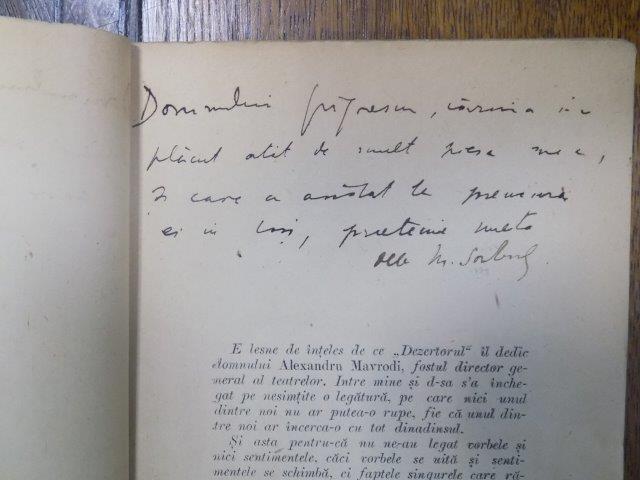 Domnului Grigorescu, căruia i-a
plăcut atît de mult piesa mea,
și care a asistat la premiera
ei în Iași, prietenie multă
dela M. Sorbul
E lesne de înțeles de ce „Dezertorul“ îl dedic
domnului Alexandru Mavrodi, fostul director ge-
neral al teatrelor. Intre mine și d-sa s'a inche-
gat pe nesimțite o legătură, pe care nici unul
dintre noi nu ar putea-o rupe, fie că unul din-
tre noi ar incerca-o cu tot dinadinsul.
Și asta pentru-că nu ne-au legat vorbele și
nici sentimentele, căci vorbele se uită și senti-
mentele se schimbă, ci faptele singurele care ră-